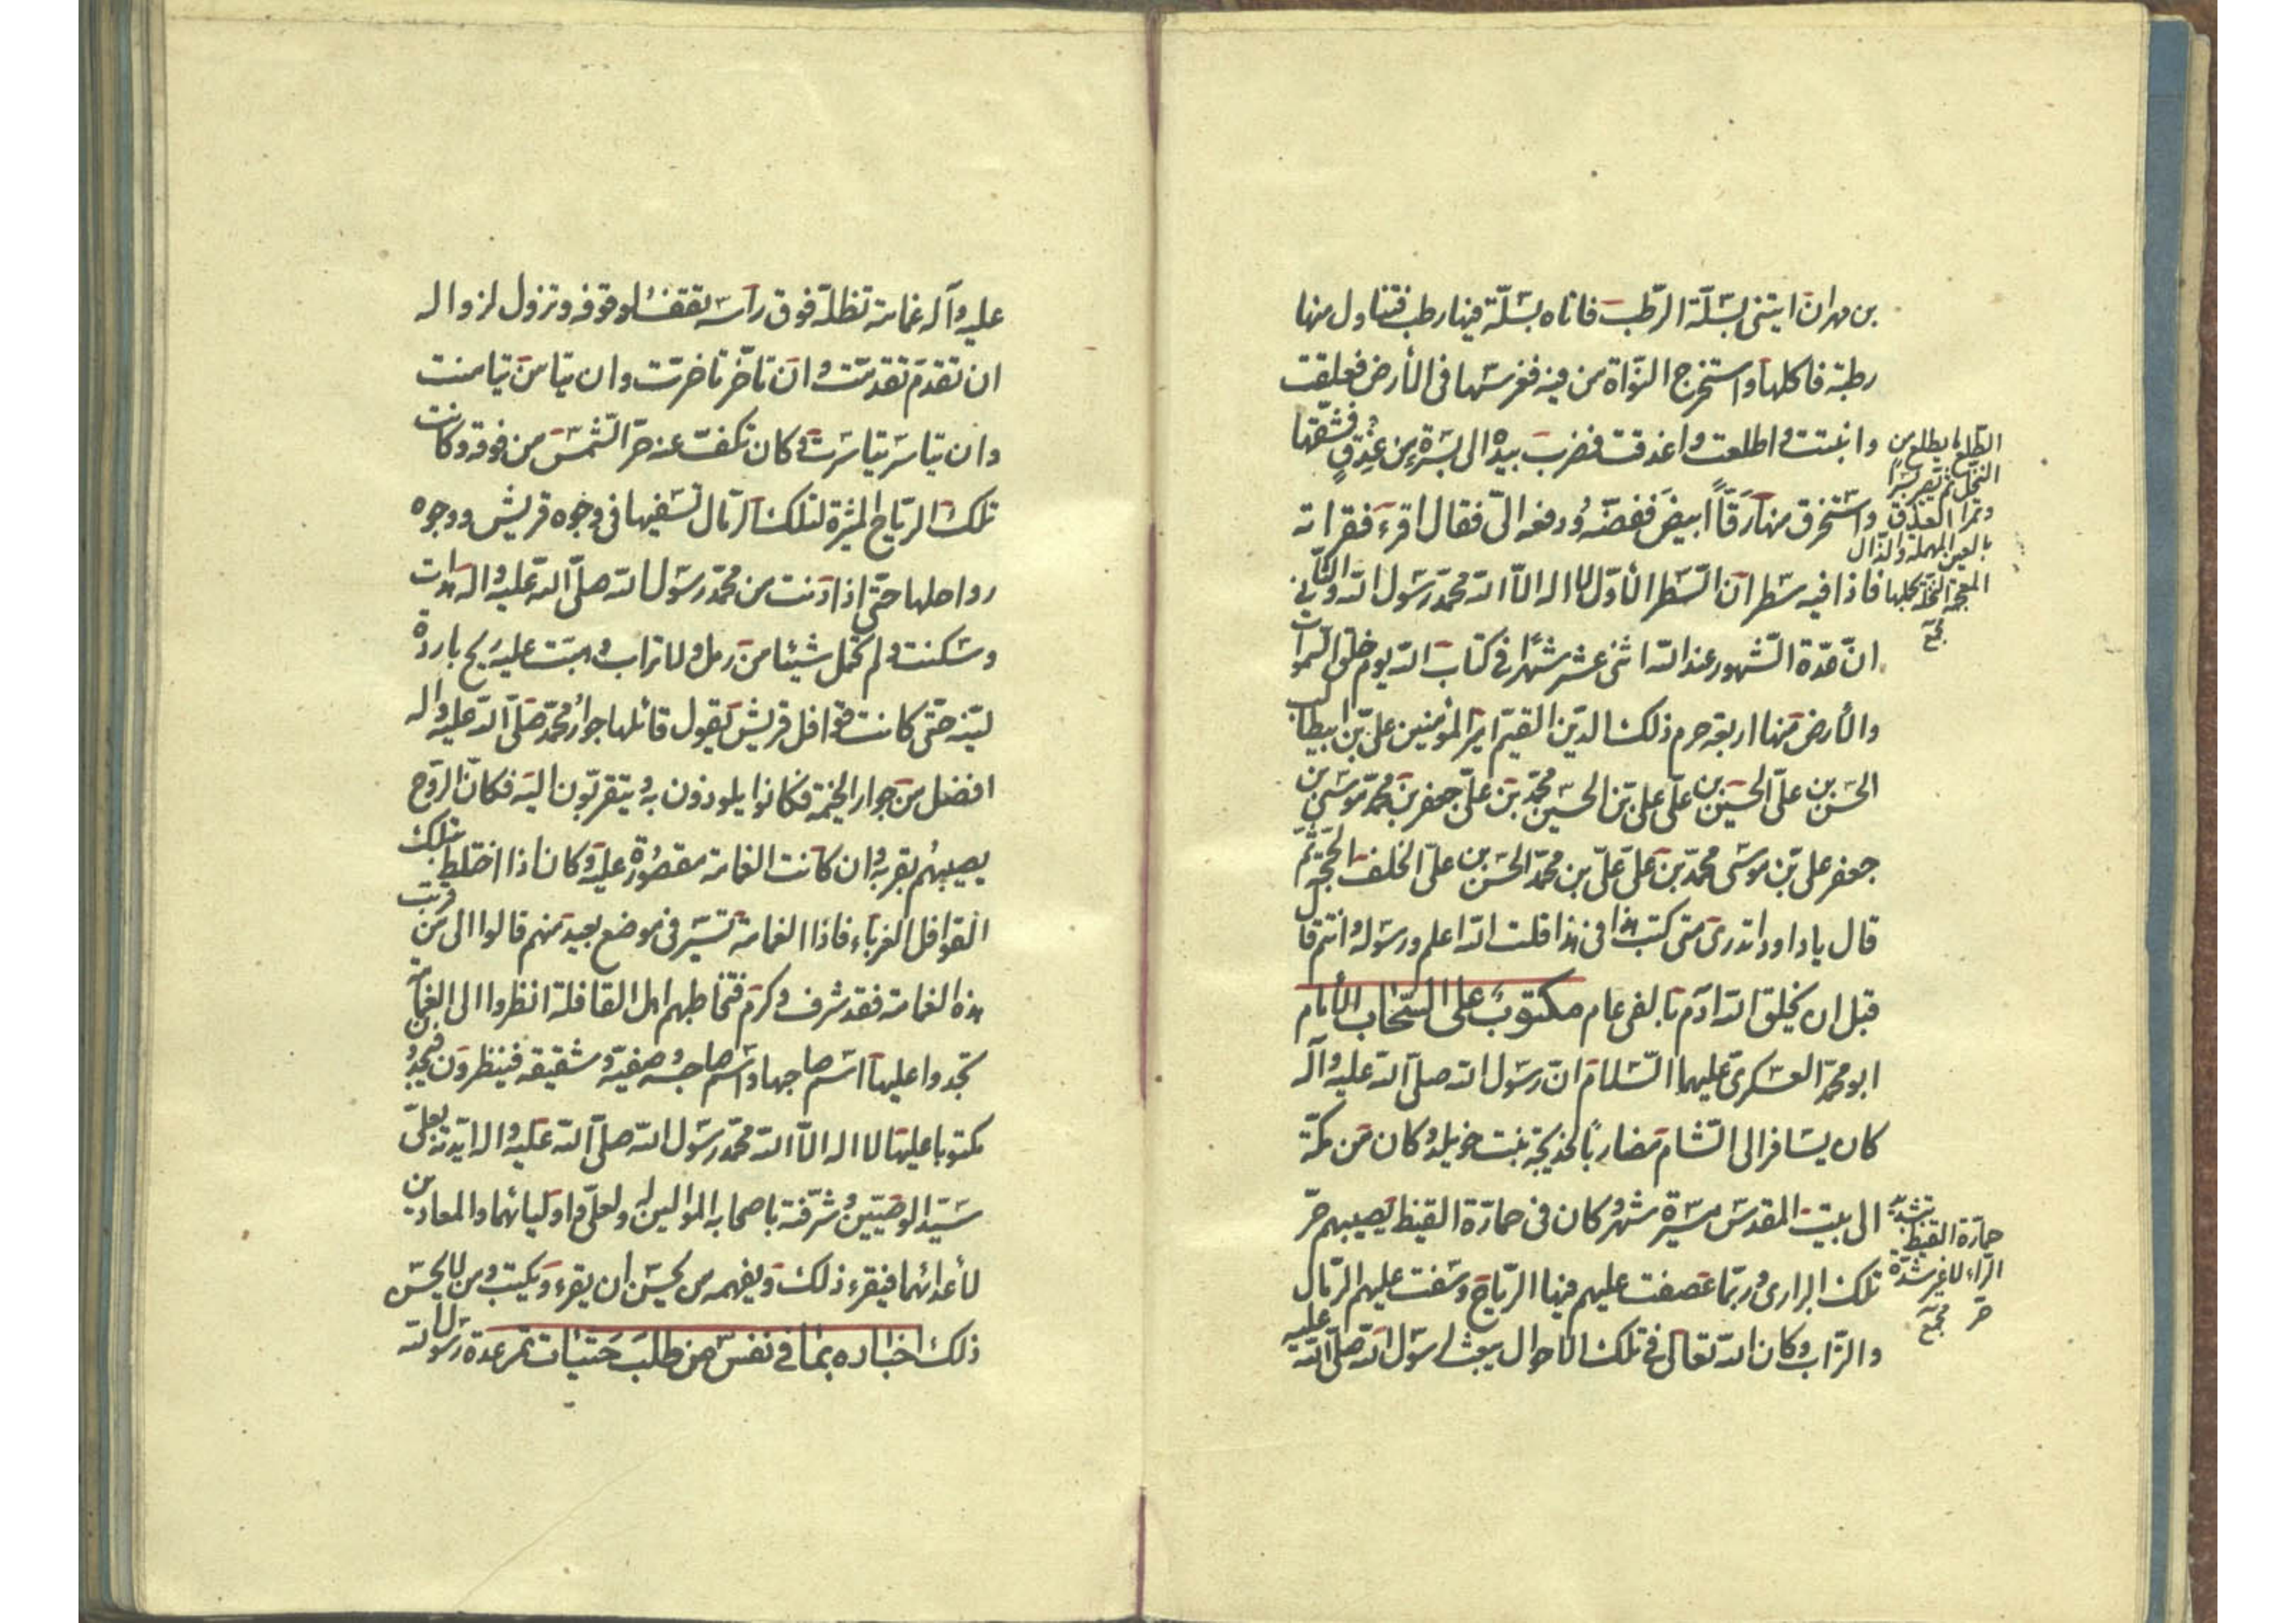 بن مهران ايتنى بسلّة الرّطب فاتاه بسلّة فيها رطب فتناول منها
رطبة فاكلها واستخرج النّواة من فيه فغرسها فى الأرض فعلقت
وانبتت واطلعت واعذقت فضرب بيده الى بسرة من عذق فشقّها
واستخرق منها رَقّاً ابيض ففضّه ودفعه الىّ فقال اقرء فقراته
فاذا فيه سطران السّطر الاوّل لا اله الّا الله محمّد رسول الله والثّانى
انّ عدّة الشّهور عند الله اثنى عشر شهرًا فى كتاب الله يوم خلق السّموات
والأرض منها اربعة حرم ذلك الدّين القيّم امير المؤمنين علىّ بن ابيطالب
الحسن بن علىّ الحسين بن علىّ علىّ بن الحسين محمّد بن علىّ جعفر بن محمّد موسى بن
جعفر على بن موسى محمّد بن علىّ علىّ بن محمّد الحسن بن علىّ الخلف الحجّة ثمّ
قال ياداود اتدرى متى كتب هذا فى هذا قلت الله اعلم ورسوله وانتم قال
قبل ان يخلق الله ادم بالفى عام مكتوب على السّحاب الأمام
ابو محمّد العسكرى عليهما السّلام ان رسول الله صلّى الله عليه وآله
كان يسافر الى الشّام مضاربًا لخديجة بنت خويلد وكان من مكّة
الى بيت المقدس مسيرة شهر وكان فى حمارّة القيظ يصيبهم حرّ
تلك البرارى وربّما عصفت عليهم فيها الرّياح وسفت عليهم الرّمال
والتّراب وكان الله تعالى فى تلك الاحوال يبعث لرسول الله صلّى الله عليه
الطّلع ما يطلع من
النّخل ثم يصير بسرًا
وتمرًا العذق
بالعين المهملة والذّال
المعجمة النّخلة بحملها
مجمع
حمارّة القيظ بتشديد
الرّاء لا غير شدّة
حرّ مجمع
عليه وآله غمامة تظلّه فوق راسه تقف لوقوفه وتزول لزواله
ان تقدم تقدّمت وان تاخّر تاخرت وان تيامن تيامنت
وان تياسر تياسرت وكان تكفّ عنه حرّ الشّمس من فوقه وكانت
تلك الرّياح المثيرة لتلك الرّمال تسفيها فى وجوه قريش ووجوه
رواحلها حتى اذا دنت من محمّد رسول الله صلّى الله عليه واله هدات
وسكنت ولم تحمل شيئا من رمل ولا تراب وهبّت عليه ريح باردة
ليّنة حتّى كانت قوافل قريش يقول قائلها جوار محمّد صلّى الله عليه واله
افضل من جوار الخيمة فكانوا يلوذون به ويتقربّون اليه فكان الرّوح
يصيبهم بقربه وان كانت الغمامة مقصورة عليه وكان اذا اختلط بتلك
القوافل الغرباء فاذا الغمامة تسير فى موضع بعيد منهم قالوا الى من قرنت
هذه الغمامة فقد شرف وكرم فتخاطبهم اهل القافلة انظروا الى الغمامة
تجدوا عليها اسم صاحبها واسم صاحبه وصفيّه وشقيقه فينظرون فيجدون
مكتوبا عليها لا اله الّا الله محمّد رسول الله صلّى الله عليه واله ايّدته بعلىّ
سيّد الوصيّين وشرّفته باصحابه الموالين له ولعلىّ واوليائهما والمعادين
لأعدائهما فيقرء ذلك ويفهمه من يحسن ان يقرء ويكتب ومن لا يحسن
ذلك اخباره بما فى نفس من طلب حثيات تمر عدة رسول الله